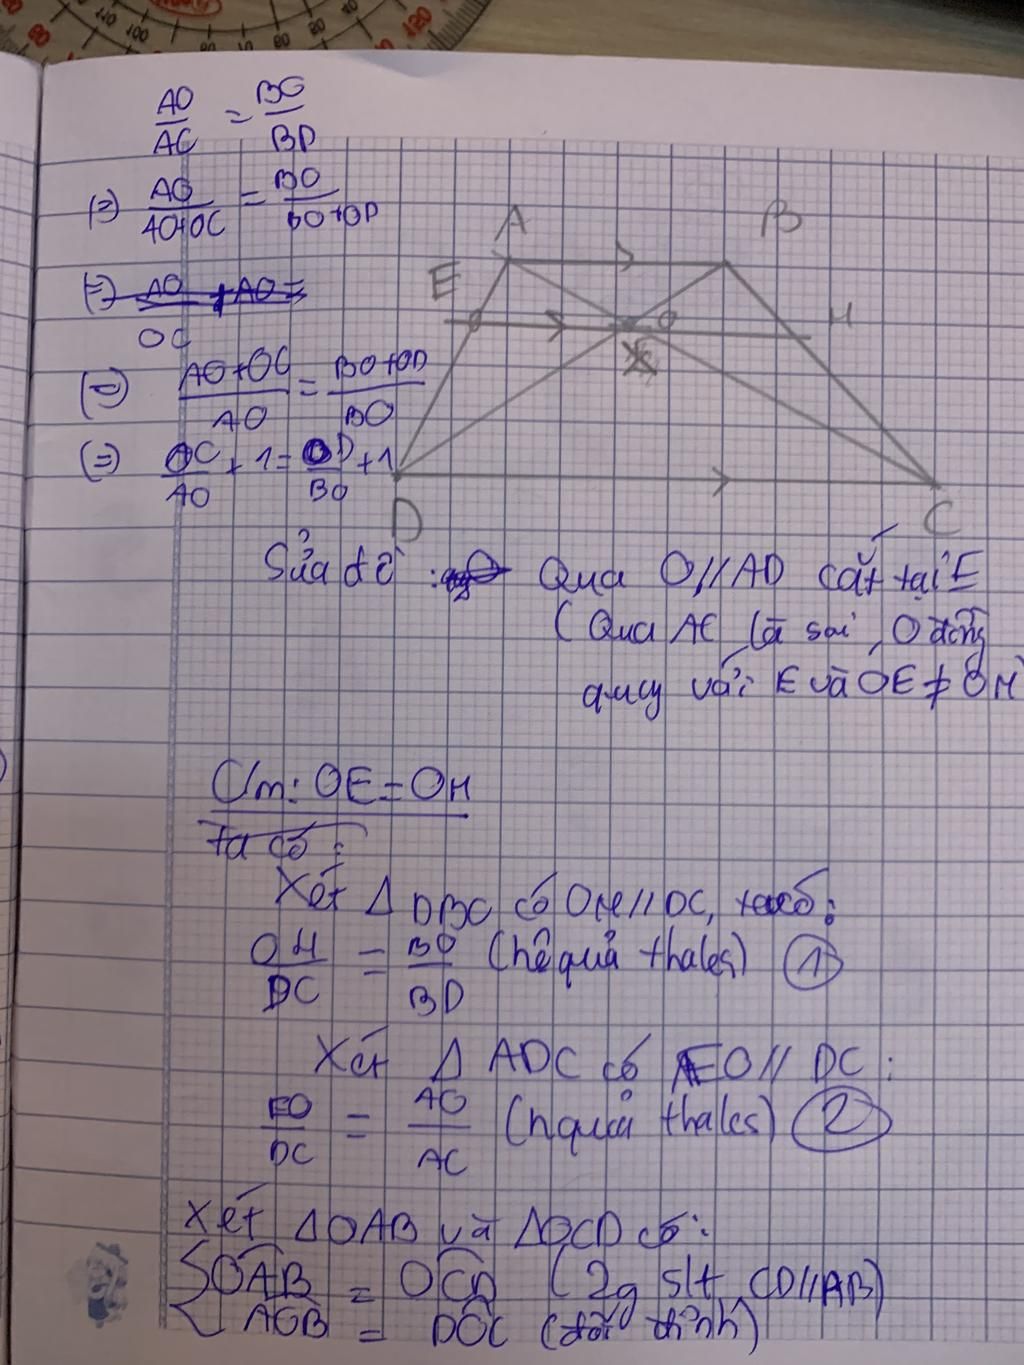 AO/AC = BO/BD
(=) AO/AO+OC = BO/BO+OD
(=) AO + AO =
OC
(=) AO+OC/AO = BO+OD/BO
(=) OC/AO + 1 = OD/BO + 1
A B
E H
O
D C
Sửa đề : Qua O//AD cắt tại E
(Qua AC là sai, O đồng
quy với E và OE ≠ OH)
C/m: OE = OH
ta có :
Xét Δ DBC có OH // DC, ta có :
OH/DC = BO/BD (hệ quả thales) (1)
Xét Δ ADC có EO // DC :
EO/DC = AO/AC (h quả thales) (2)
Xét ΔOAB và ΔOCD có :
OAB = OCD (2g slt, CD//AB)
AOB = DOC (đối đỉnh)